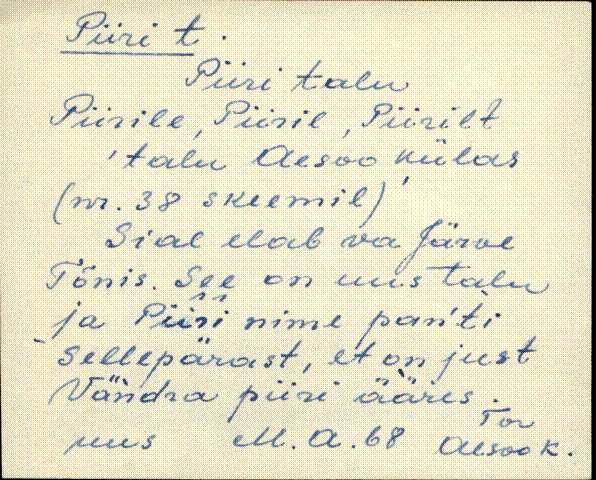 Piiri t.
Piiri talu
Piirile, Piiril, Piirilt
'talu Aesoo külas
(nr. 38 skeemil)
Sial elab va Järve
Tõnis. See on uus talu
ja Piiri nime pan'ti
sellepärast, et on just
Vändra piiri ääres.
uus M.A.68 Tor
Aesoo k.